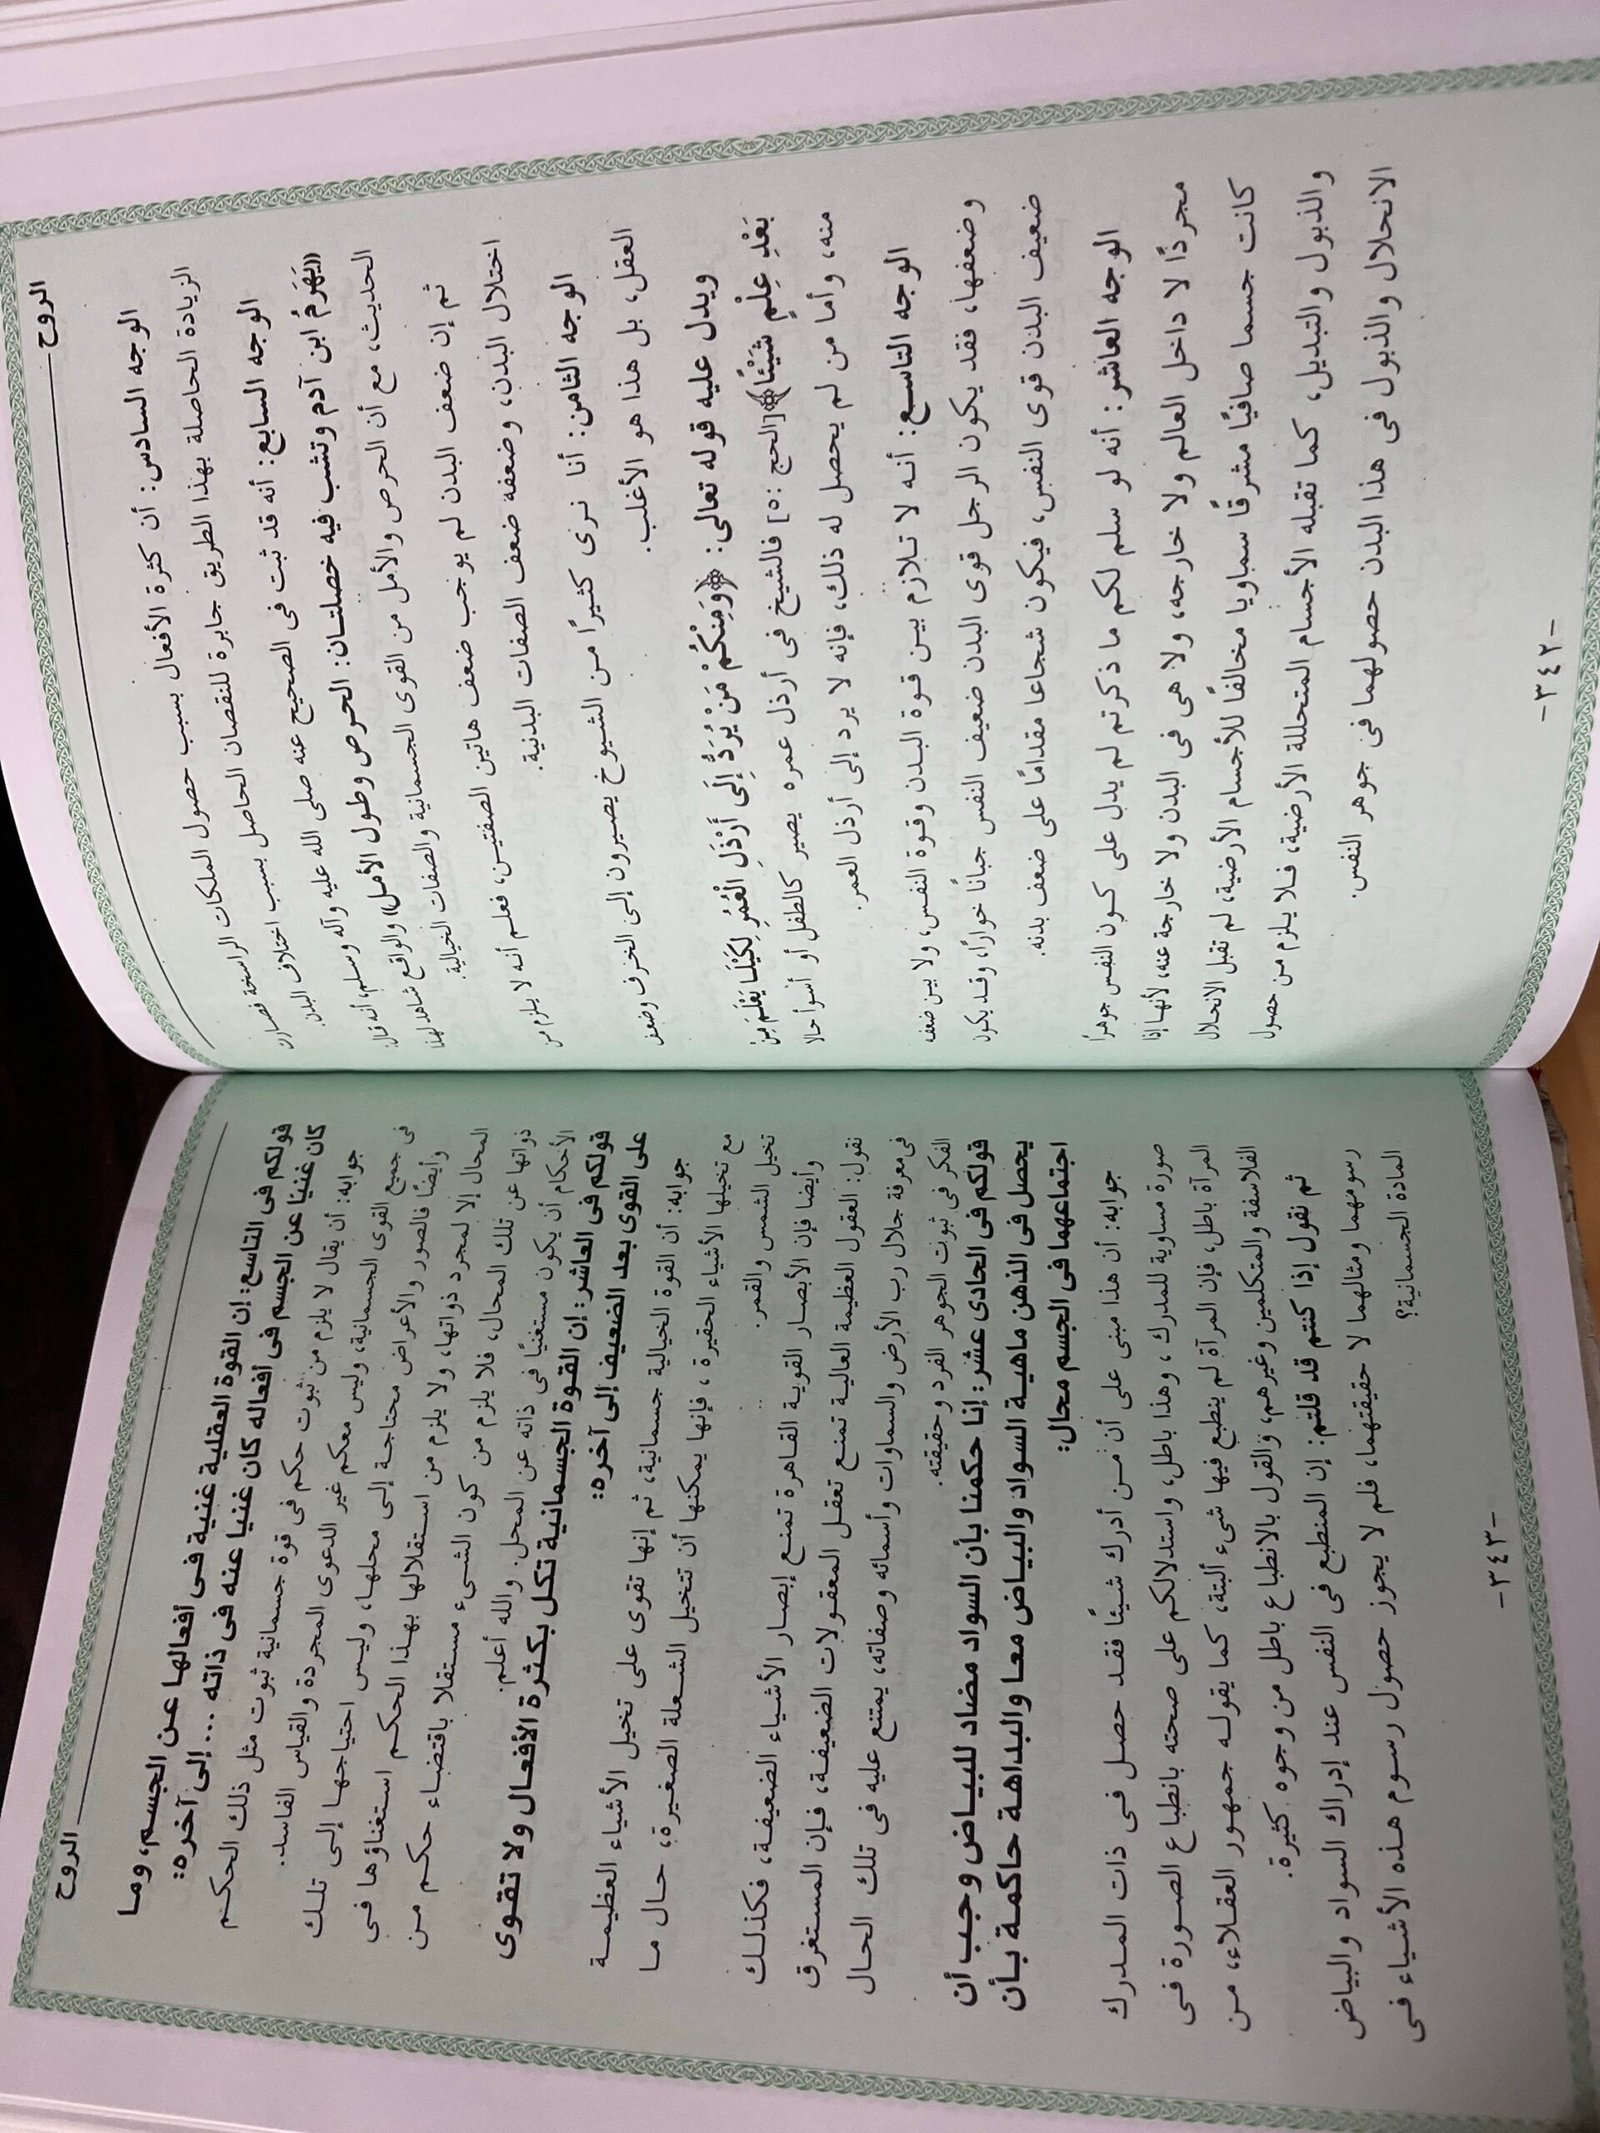 الروح
الوجه السادس: أن كثرة الأفعال بسبب حصول الملكات الراسخة فصارت
الزيادة الحاصلة بهذا الطريق جابرة للنقصان الحاصل بسبب اختلاف البدن.
الوجه السابع: أنه قد ثبت فى الصحيح عنه صلى الله عليه وآله وسلم، أنه قال:
((يَهَرَمُ ابن آدم وتشب فيه خصلتان: الحرص وطول الأمل)) والواقع شاهد لهذا
الحديث، مع أن الحرص والأمل من القوى الجسمانية والصفات الخيالية.
ثم إن ضعف البدن لم يوجب ضعف هاتين الصفتين، فعلم أنه لا يلزم من
اختلال البدن، وضعفه ضعف الصفات البدنية.
الوجه الثامن: أنا نرى كثيرًا من الشيوخ يصيرون إلى الخرف وضعف
العقل، بل هذا هو الأغلب.
ويدل عليه قوله تعالى: ﴿وَمِنْكُمْ مَنْ يُرَدُّ إِلَى أَرْذَلِ الْعُمُرِ لِكَيْلَا يَعْلَمَ مِنْ
بَعْدِ عِلْمٍ شَيْئًا﴾ [الحج :٥] فالشيخ فى أرذل عمره يصير كالطفل أو أسوأ حالا
منه، وأما من لم يحصل له ذلك، فإنه لا يرد إلى أرذل العمر.
الوجه التاسع: أنه لا تلازم بين قوة البدن وقوة النفس، ولا بين ضعفه
وضعفها، فقد يكون الرجل قوى البدن ضعيف النفس جبانًا خوارًا، وقد يكون
ضعيف البدن قوى النفس، فيكون شجاعا مقدامًا على ضعف بدنه.
الوجه العاشر: أنه لو سلم لكم ما ذكرتم لم يدل على كون النفس جوهرًا
مجردًا لا داخل العالم ولا خارجه، ولا هى فى البدن ولا خارجة عنه، لأنها إذا
كانت جسما صافيًا مشرقًا سماويا مخالفًا للأجسام الأرضية، لم تقبل الانحلال
والذبول والتبديل، كما تقبله الأجسام المتحللة الأرضية، فلا يلزم من حصول
الانحلال والذبول فى هذا البدن حصولهما فى جوهر النفس.
-٣٤٢-
الروح
قولكم فى التاسع: إن القوة العقلية غنية فى أفعالها عن الجسم، وما
كان غنيًا عن الجسم فى أفعاله كان غنيا عنه فى ذاته ... إلى آخره:
جوابه: أن يقال لا يلزم من ثبوت حكم فى قوة جسمانية ثبوت مثل ذلك الحكم
فى جميع القوى الجسمانية، وليس معكم غير الدعوى المجردة والقياس الفاسد.
وأيضًا فالصور والأعراض محتاجة إلى محلها، وليس احتياجها إلى تلك
المحال إلا لمجرد ذواتها، ولا يلزم من استقلالها بهذا الحكم استغناؤها فى
ذواتها عن تلك المحال، فلا يلزم من كون الشىء مستقلا باقتضاء حكم من
الأحكام أن يكون مستغنيًا فى ذاته عن المحل. والله أعلم.
قولكم فى العاشر: إن القوة الجسمانية تكل بكثرة الأفعال ولا تقوى
على القوى بعد الضعيف إلى آخره:
جوابه: أن القوة الخيالية جسمانية، ثم إنها تقوى على تخيل الأشياء العظيمة
مع تخيلها الأشياء الحقيرة، فإنها يمكنها أن تتخيل الشعلة الصغيرة، حال ما
تخيل الشمس والقمر.
وأيضا فإن الأبصار القوية القاهرة تمنع إبصار الأشياء الضعيفة، فكذلك
نقول: العقول العظيمة العالية تمنع تعقل المعقولات الضعيفة، فإن المستغرق
فى معرفة جلال رب الأرض والسماوات وأسمائه وصفاته، يمتنع عليه فى تلك الحال
الفكر فى ثبوت الجوهر الفرد وحقيقته.
قولكم فى الحادى عشر: إنا حكمنا بأن السواد مضاد للبياض وجب أن
يحصل فى الذهن ماهية السواد والبياض معا والبداهة حاكمة بأن
اجتماعهما فى الجسم محال:
جوابه: أن هذا مبنى على أن من أدرك شيئًا فقد حصل فى ذات المدرك
صورة مساوية للمدرك، وهذا باطل، واستدلالكم على صحته بانطباع الصورة فى
المرآة باطل، فإن المرآة لم ينطبع فيها شىء ألبتة، كما يقوله جمهور العقلاء، من
الفلاسفة والمتكلمين وغيرهم، والقول بالانطباع باطل من وجوه كثيرة.
ثم نقول إذا كنتم قد قلتم: إن المنطبع فى النفس عند إدراك السواد والبياض
رسومهما ومثالهما لا حقيقتهما، فلم لا يجوز حصول رسوم هذه الأشياء فى
المادة الجسمانية؟
-٣٤٣-